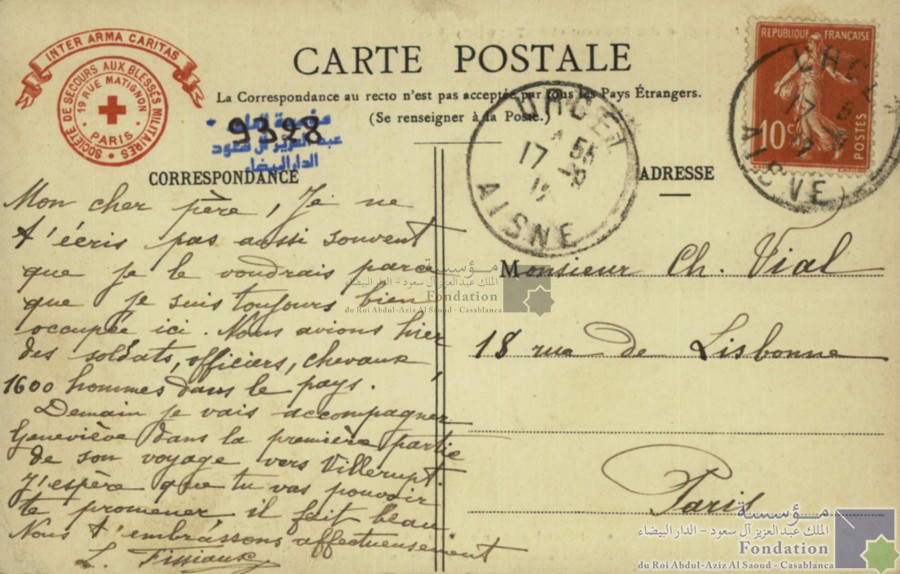 INTER ARMA CARITAS
SOCIÉTÉ DE SECOURS AUX BLESSÉS MILITAIRES
19 RUE MATIGNON
PARIS
CARTE POSTALE
La Correspondance au recto n'est pas acceptée par tous les Pays Étrangers.
(Se renseigner à la Poste.)
9328
عبد العزيز آل سعود
الدار البيضاء
CORRESPONDANCE
ADRESSE
RÉPUBLIQUE FRANÇAISE
10c
POSTES
URCEL
17
AISNE
17
AISNE
Mon cher père, Je ne
t'écris pas aussi souvent
que je le voudrais parce
que je suis toujours bien
occupée ici. Nous avions hier
des soldats, officiers, chevaux
1600 hommes dans le pays.
Demain je vais accompagner
Geneviève dans la première partie
de son voyage vers Villerupt.
J'espère que tu vas pouvoir
te promener il fait beau
Nous t'embrassons affectueusement
L.
Monsieur Ch. Vial
18 rue de Lisbonne
Paris
مؤسسة
الملك عبد العزيز آل سعود - الدار البيضاء
Fondation
du Roi Abdul-Aziz Al Saoud - Casablanca
مؤسسة
الملك عبد العزيز آل سعود - الدار البيضاء
Fondation
du Roi Abdul-Aziz Al Saoud - Casablanca